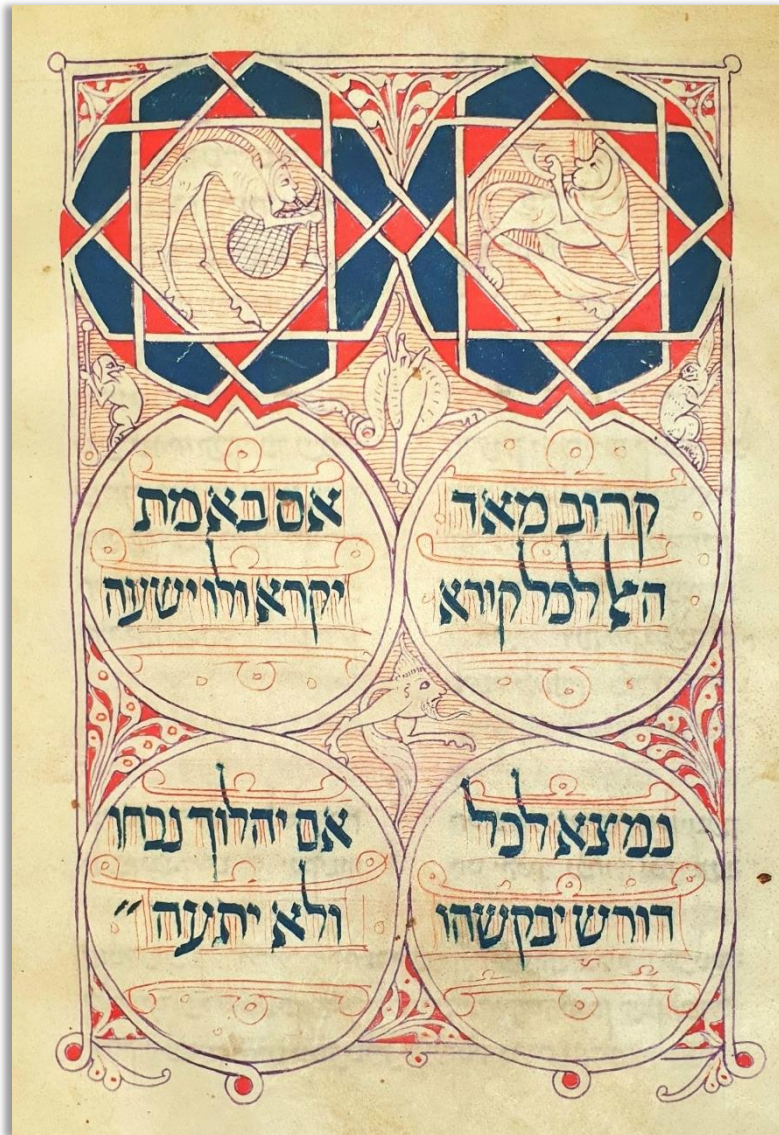 קרוב מאד
הﭏ לכל קורא
אם באמת
יקרא ולו ישעה
נמצא לכל
דורש יבקשהו
אם יהלוך נכחו
ולא יתעה ״